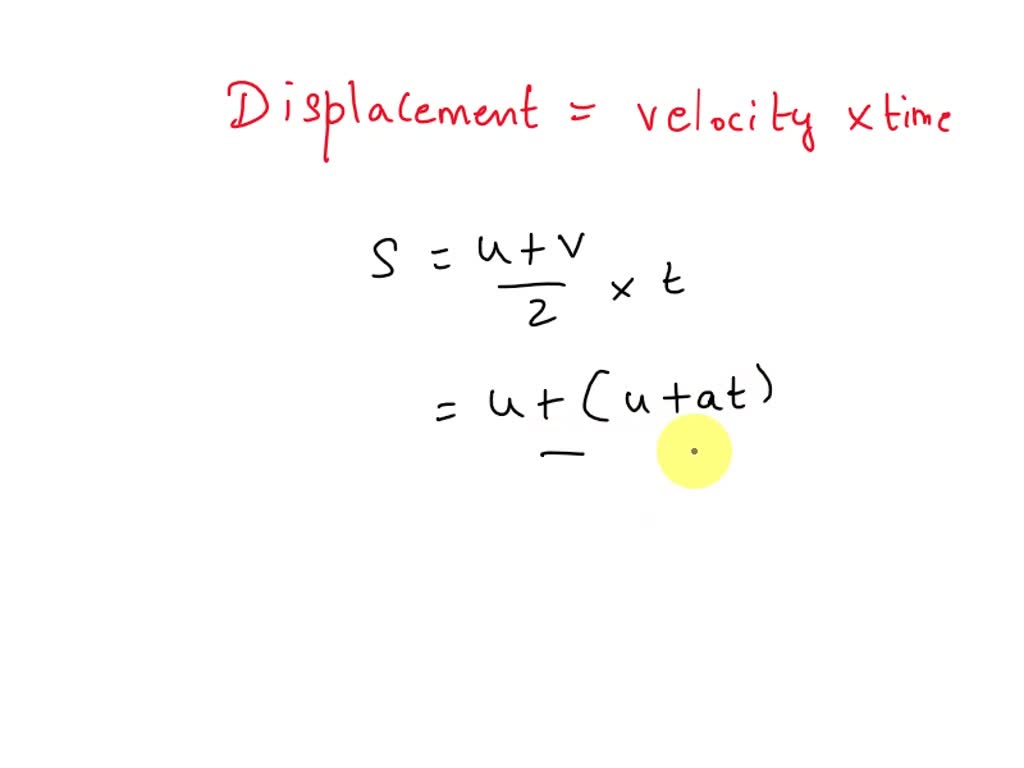 Displacement = velocity x time
S = u+v/2 x t
= u+(u+at)